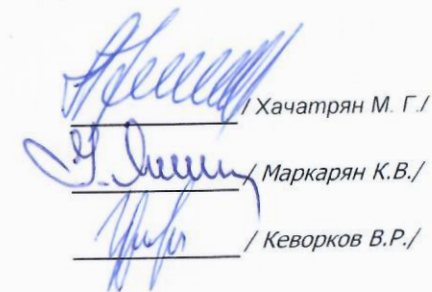 / Хачатрян М. Г./
/ Маркарян К.В./
/ Кеворков В.Р./